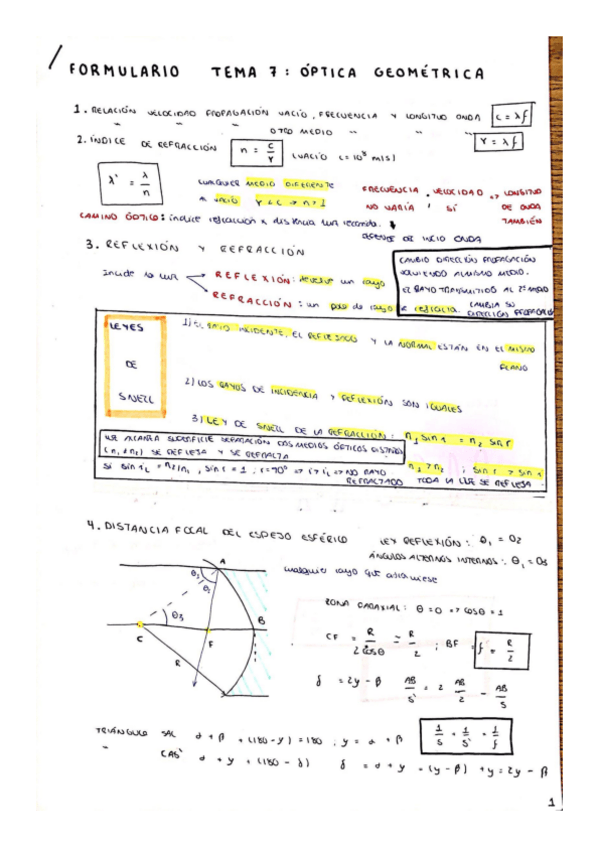 FORMULARIO TEMA 7: ÓPTICA GEOMÉTRICA
1. RELACIÓN VELOCIDAD PROPAGACIÓN VACIO, FRECUENCIA Y LONGITUD ONDA c = λf
" " OTRO MEDIO " " " v = λf
2. ÍNDICE DE REFRACCIÓN n = c/v (VACIO c=10⁸ m/s)
λ' = λ/n
CUALQUIER MEDIO DIFERENTE
AL VACIO v < c → n > 1
FRECUENCIA NO VARÍA, VELOCIDAD SÍ => LONGITUD DE ONDA TAMBIÉN
CAMINO ÓPTICO: índice refracción x distancia luz recorrida.
DEPENDE DE INCIO ONDA
3. REFLEXIÓN Y REFRACCIÓN
Incide la luz
REFLEXIÓN: devuelve un rayo
REFRACCIÓN: un paso de rayo se refracta.
CAMBIO DIRECCIÓN PROPAGACIÓN
VOLVIENDO AL MISMO MEDIO.
EL RAYO TRANSMITIDO AL 2º MEDIO
CAMBIA SU
DIRECCIÓN PROPAGACIÓN
LEYES
DE
SNELL
1) EL RAYO INCIDENTE, EL REFLEJADO Y LA NORMAL ESTÁN EN EL MISMO
PLANO
2) LOS RAYOS DE INCIDENCIA Y REFLEXIÓN SON IGUALES
3) LEY DE SNELL DE LA REFRACCIÓN: n₁ sin i = n₂ sin r
LUZ ALCANZA SUPERFICIE SEPARACIÓN DOS MEDIOS ÓPTICOS DISTINTOS
(n₁ ≠ n₂) SE REFLEJA Y SE REFRACTA
n₁ > n₂ ; sin r > sin i
Si sin iL = n₂/n₁, sin r = 1 ; r=90° => i > iL => NO RAYO
REFRACTADO TODA LA LUZ SE REFLEJA
4. DISTANCIA FOCAL DEL ESPEJO ESFÉRICO
LEY REFLEXIÓN: θ₁ = θ₂
ÁNGULOS ALTERNOS INTERNOS: θ₁ = θ₃
cualquier rayo que atraviese
A
θ₁
θ₂
θ₃
B
C
F
R
ZONA PARAXIAL: θ = 0 => cos θ = 1
CF = R/2cosθ = R/2 ; BF = f = R/2
δ = 2γ - β AB/S' = 2 AB/2 - AB/S
TRIÁNGULO SAC α + β + (180 - γ) = 180 ; γ = α + β
1/S + 1/S' = 1/f
" CAS' α + γ + (180 - δ) δ = α + γ = (γ - β) + γ = 2γ - β
1